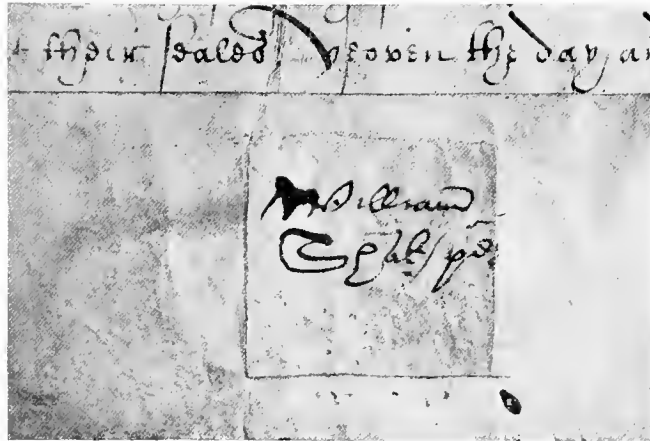 their seales yeoven the day an
William
Shakspe